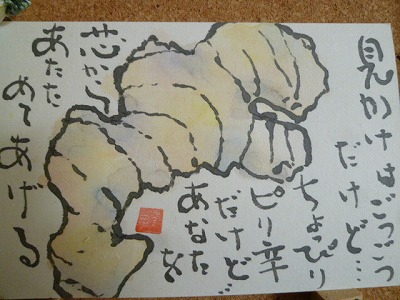 見かけはごつごつ
だけど…
ちょっぴり
ピリ辛
だけど
あなたを
芯から
あたた
めてあげる